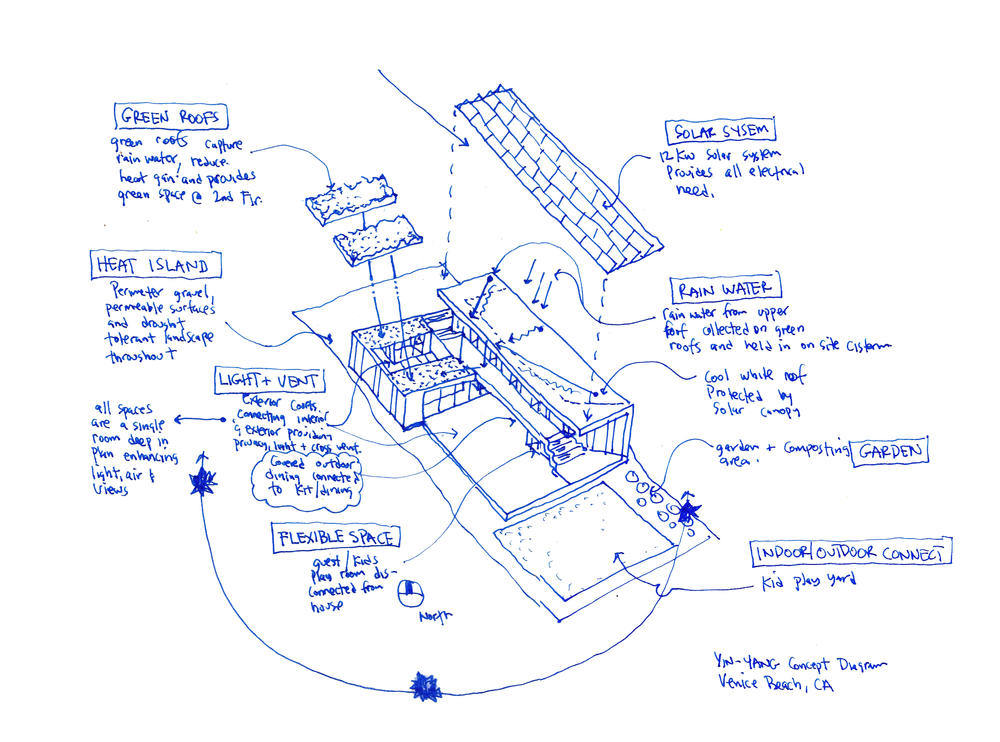 GREEN ROOFS
green roofs capture
rain water, reduce
heat gain and provides
green space @ 2nd Flr.
HEAT ISLAND
Perimeter gravel,
permeable surfaces
and drought
tolerant landscape
throughout
LIGHT + VENT
Exterior Courts
connecting interior
& exterior providing
privacy, light + cross vent.
all spaces
are a single
room deep in
plan enhancing
light, air &
views
Covered outdoor
dining connected
to Kit/dining
FLEXIBLE SPACE
guest/kids
play room dis-
connected from
house
North
SOLAR SYSEM
12 KW solar system
Provides all electrical
need.
RAIN WATER
rain water from upper
roof collected on green
roofs and held in on site cistern
Cool white roof
Protected by
Solar canopy
garden + composting GARDEN
area.
INDOOR/OUTDOOR CONNECT
Kid play yard
YIN-YANG Concept Diagram
Venice Beach, CA